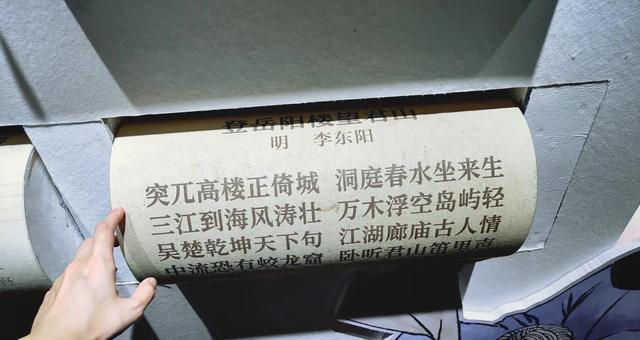 登岳阳楼望君山
明 李东阳
突兀高楼正倚城 洞庭春水坐来生
三江到海风涛壮 万木浮空岛屿轻
吴楚乾坤天下句 江湖廊庙古人情
中流恐有蛟龙窟 卧听君山笛里声